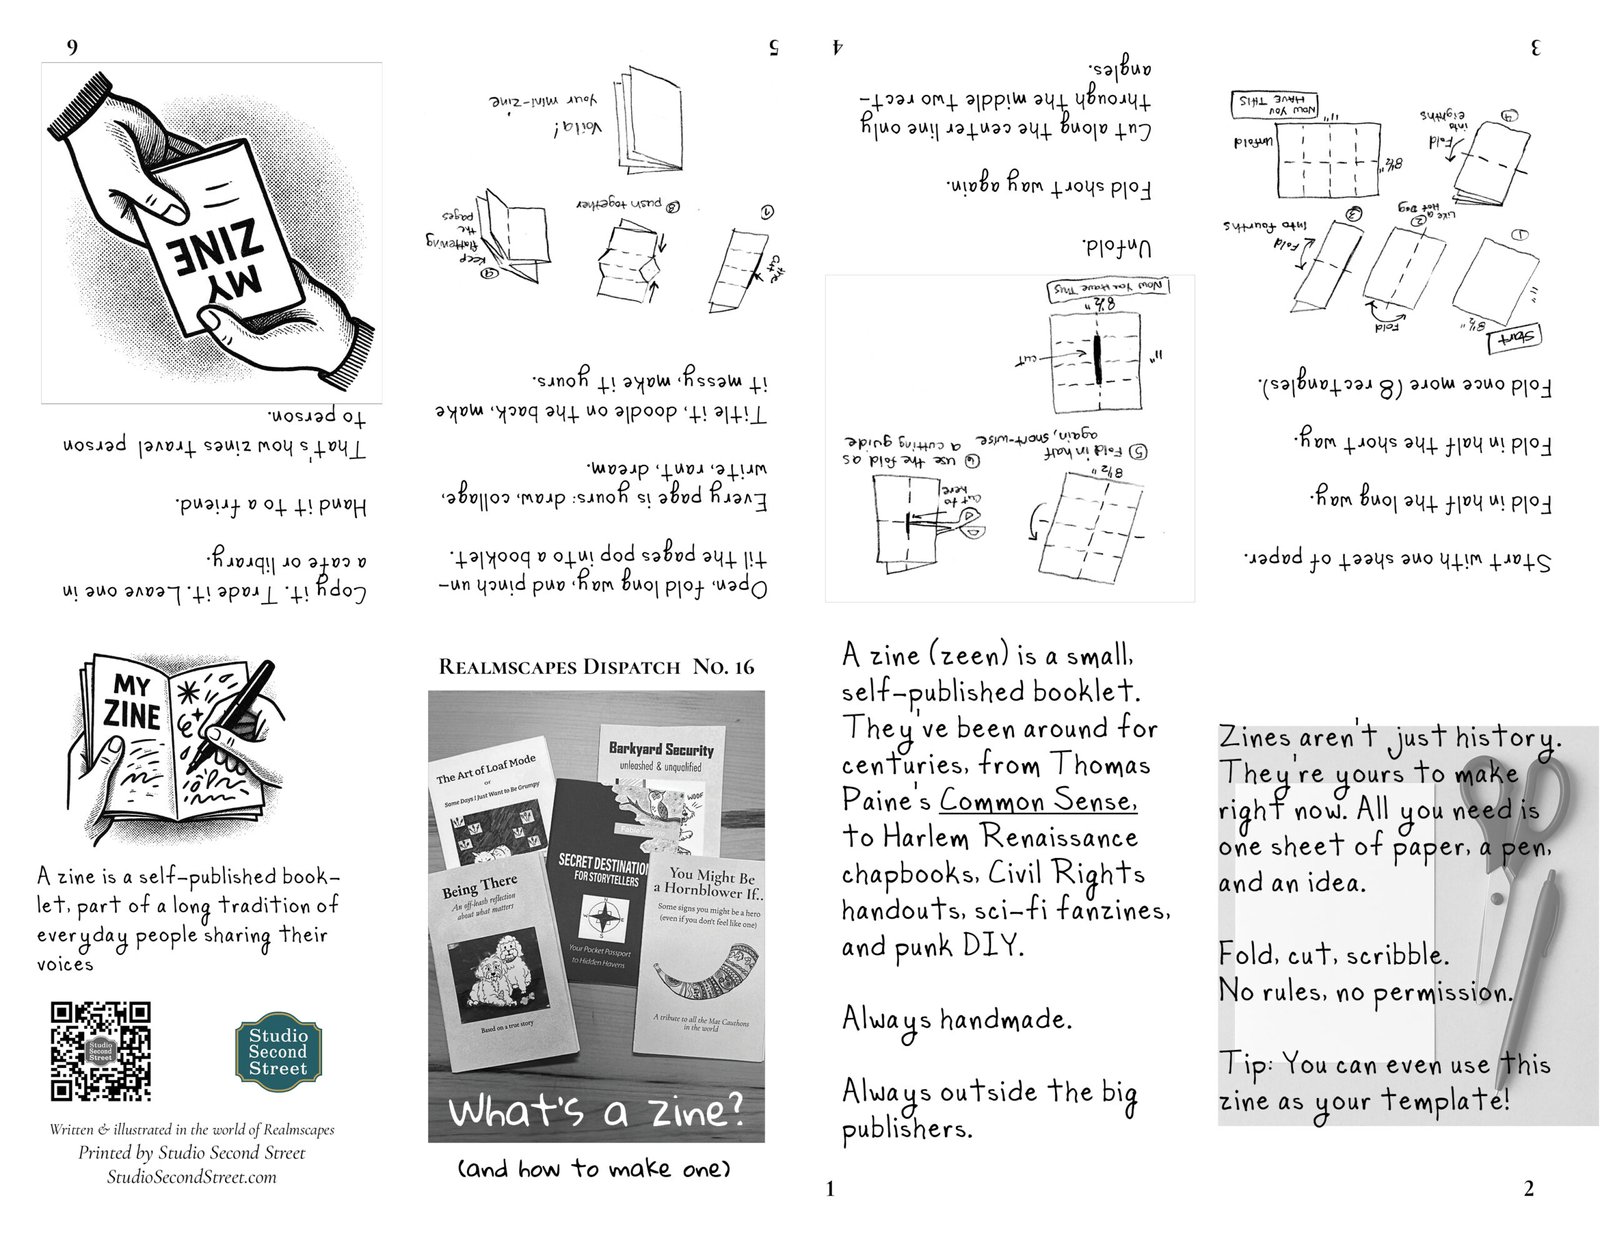 REALMSCAPES DISPATCH No. 16
The Art of Loaf Mode
or
Some Days I Just Want to Be Grumpy
Barkyard Security
unleashed & unqualified
WOOF
SECRET DESTINATION
FOR STORYTELLERS
N
S
Your Pocket Passport
to Hidden Havens
Being There
An off-leash reflection
about what matters
Based on a true story
You Might Be
a Hornblower If..
Some signs you might be a hero
(even if you don't feel like one)
A tribute to all the Mat Cauthons
in the world
What's a zine?
(and how to make one)
A zine (zeen) is a small,
self-published booklet.
They've been around for
centuries, from Thomas
Paine's Common Sense,
to Harlem Renaissance
chapbooks, Civil Rights
handouts, sci-fi fanzines,
and punk DIY.
Always handmade.
Always outside the big
publishers.
1
Zines aren't just history.
They're yours to make
right now. All you need is
one sheet of paper, a pen,
and an idea.
Fold, cut, scribble.
No rules, no permission.
Tip: You can even use this
zine as your template!
2
Start with one sheet of paper.
Fold in half the long way.
Fold in half the short way.
Fold once more (8 rectangles).
Start
8½"
11"
1
Fold
2
Like a
Hot Dog
3
Fold
into fourths
4
Fold
into
eighths
unfold
8½"
11"
NOW YOU
HAVE THIS
3
8½"
5 Fold in half
again, short-wise
cut to
here
6 use the fold as
a cutting guide
cut
11"
8½"
NOW YOU HAVE THIS
Unfold.
Fold short way again.
Cut along the center line only
through the middle two rect-
angles.
4
Open, fold long way, and pinch un-
til the pages pop into a booklet.
Every page is yours: draw, collage,
write, rant, dream.
Title it, doodle on the back, make
it messy, make it yours.
7
Cut
the
8 push together
9
Keep
flattening
the
pages
Voila!
Your mini-zine
5
Copy it. Trade it. Leave one in
a cafe or library.
Hand it to a friend.
That's how zines travel person
to person.
MY
ZINE
6
MY
ZINE
A zine is a self-published book-
let, part of a long tradition of
everyday people sharing their
voices
Studio
Second
Street
Studio
Second
Street
Written & illustrated in the world of Realmscapes
Printed by Studio Second Street
StudioSecondStreet.com